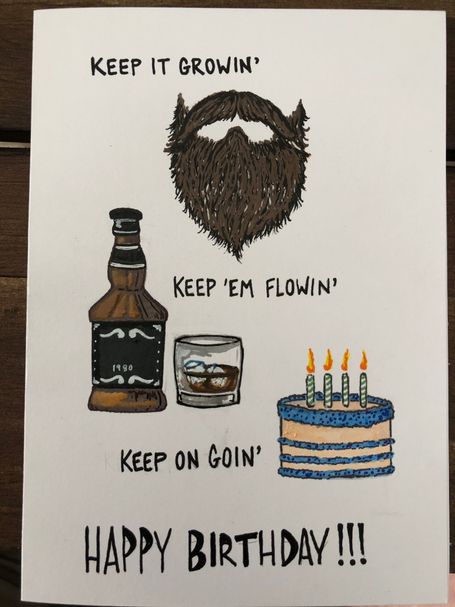 KEEP IT GROWIN'
KEEP 'EM FLOWIN'
1980
KEEP ON GOIN'
HAPPY BIRTHDAY!!!